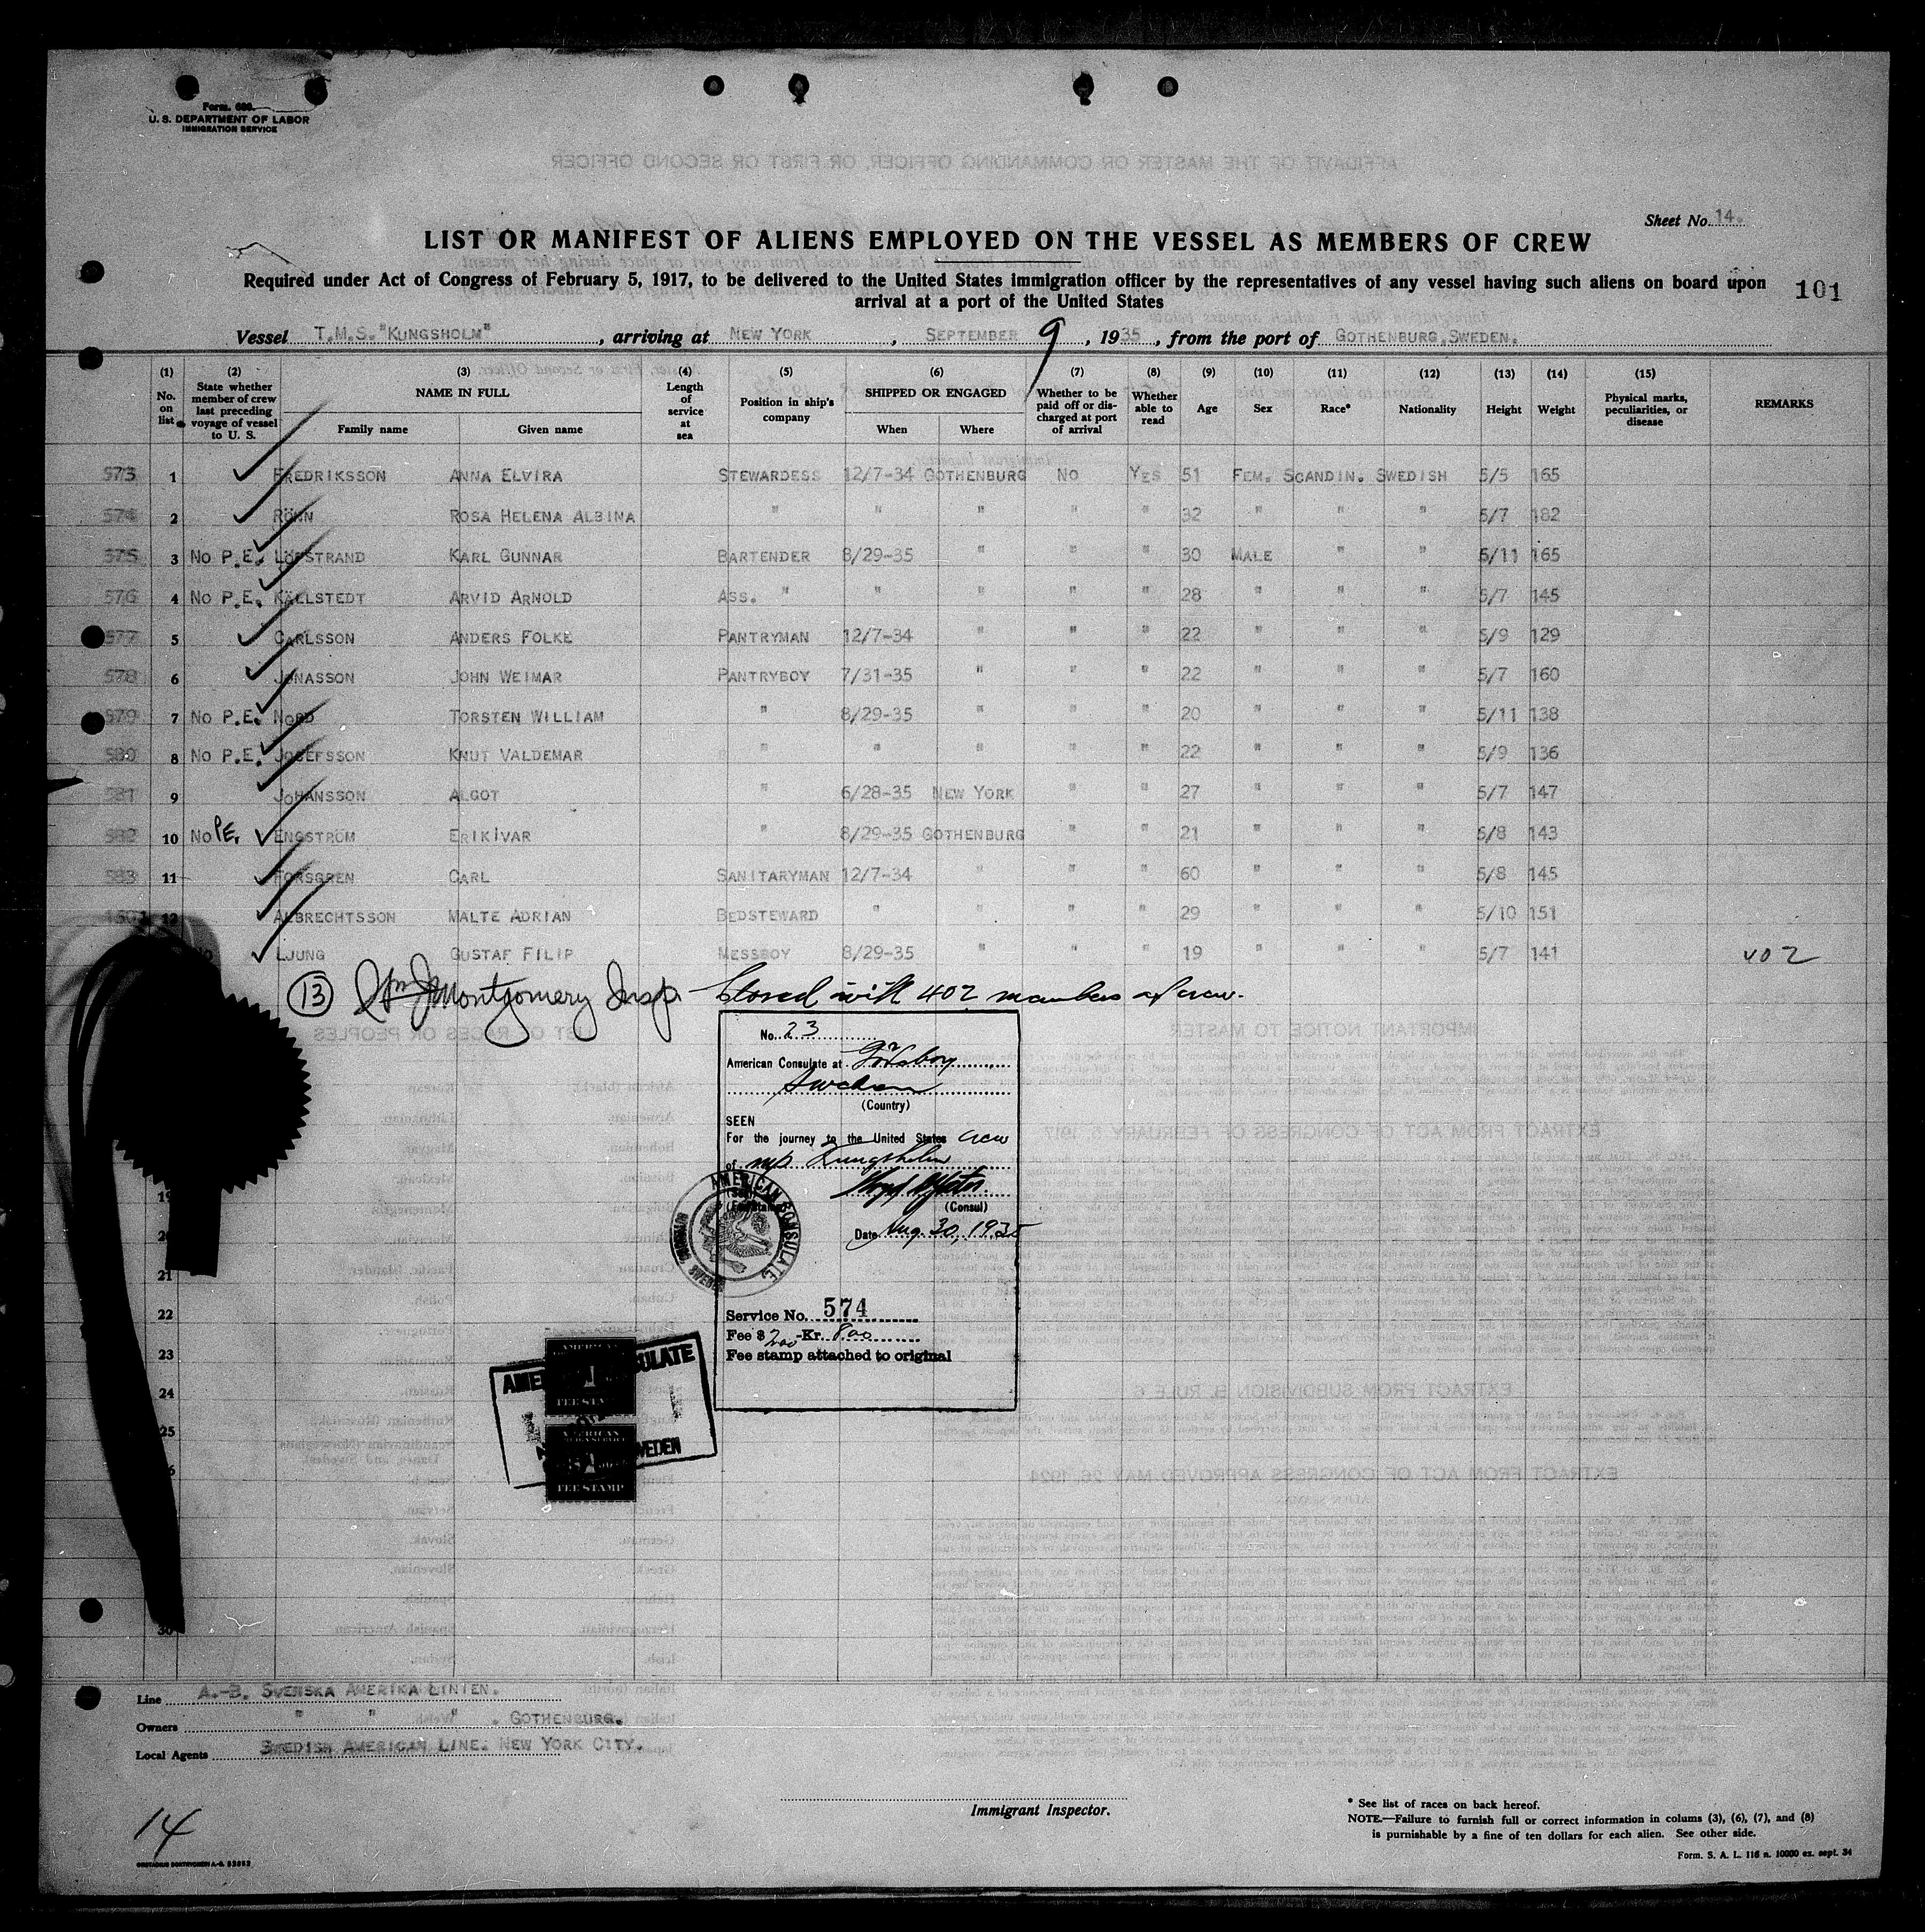 Form 680
U. S. DEPARTMENT OF LABOR
IMMIGRATION SERVICE
Sheet No. 14.
LIST OR MANIFEST OF ALIENS EMPLOYED ON THE VESSEL AS MEMBERS OF CREW
Required under Act of Congress of February 5, 1917, to be delivered to the United States immigration officer by the representatives of any vessel having such aliens on board upon
arrival at a port of the United States
101
Vessel T.M.S."KUNGSHOLM", arriving at NEW YORK, SEPTEMBER 9, 1935, from the port of GOTHENBURG, SWEDEN.
(1) No. on list (2) State whether member of crew last preceding voyage of vessel to U. S. (3) NAME IN FULL Family name Given name (4) Length of service at sea (5) Position in ship's company (6) SHIPPED OR ENGAGED When Where (7) Whether to be paid off or discharged at port of arrival (8) Whether able to read (9) Age (10) Sex (11) Race* (12) Nationality (13) Height (14) Weight (15) Physical marks, peculiarities, or disease REMARKS
573 1 FREDRIKSSON ANNA ELVIRA STEWARDESS 12/7-34 GOTHENBURG NO YES 51 FEM. SCANDIN. SWEDISH 5/5 165
574 2 RÖNN ROSA HELENA ALBINA " " " " " 32 " " " 5/7 182
575 3 NO P.E. LÖFSTRAND KARL GUNNAR BARTENDER 8/29-35 " " " 30 MALE " " 5/11 165
576 4 NO P.E. KÄLLSTEDT ARVID ARNOLD ASS. " " " " " 28 " " " 5/7 145
577 5 CARLSSON ANDERS FOLKE PANTRYMAN 12/7-34 " " " 22 " " " 5/9 129
578 6 JONASSON JOHN WEIMAR PANTRYBOY 7/31-35 " " " 22 " " " 5/7 160
579 7 NO P.E. NORD TORSTEN WILLIAM " 8/29-35 " " " 20 " " " 5/11 138
580 8 NO P.E. JOSEFSSON KNUT VALDEMAR " " " " " 22 " " " 5/9 136
581 9 JOHANSSON ALGOT " 6/28-35 NEW YORK " " 27 " " " 5/7 147
582 10 NO P.E. ENGSTRÖM ERIK IVAR " 8/29-35 GOTHENBURG " " 21 " " " 5/8 143
583 11 FORSGREN CARL SANITARYMAN 12/7-34 " " " 60 " " " 5/8 145
12 ALBRECHTSSON MALTE ADRIAN BEDSTEWARD " " " " 29 " " " 5/10 151
No LJUNG GUSTAF FILIP MESSBOY 8/29-35 " " " 19 " " " 5/7 141 402
(13) Wm J Montgomery Insp. Closed with 402 members of crew.
No. 23
American Consulate at Göteborg
Sweden
(Country)
SEEN
For the journey to the United States crew
of m/s Kungsholm
AMERICAN CONSULATE,
SWEDEN
(Consul)
Date Aug. 30, 1935
19
20
21
22
23
24
25
30
Service No. 574
Fee $ 2.00 -Kr. 8.00
Fee stamp attached to original
AMERICAN CONSULATE
SWEDEN
FEE STAMP
FEE STAMP
Line A.-B. SVENSKA AMERIKA LINIEN.
Owners " " " . GOTHENBURG.
Local Agents SWEDISH AMERICAN LINE. NEW YORK CITY.
Immigrant Inspector.
* See list of races on back hereof.
NOTE.—Failure to furnish full or correct information in colums (3), (6), (7), and (8)
is purnishable by a fine of ten dollars for each alien. See other side.
Form. S. A. L. 116 n. 10000 ex. sept. 34
14